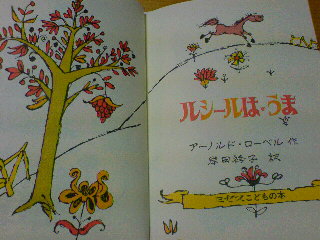 ルシールは・うま
アーノルド・ローベル 作
岸田衿子 訳
ミセスこどもの本